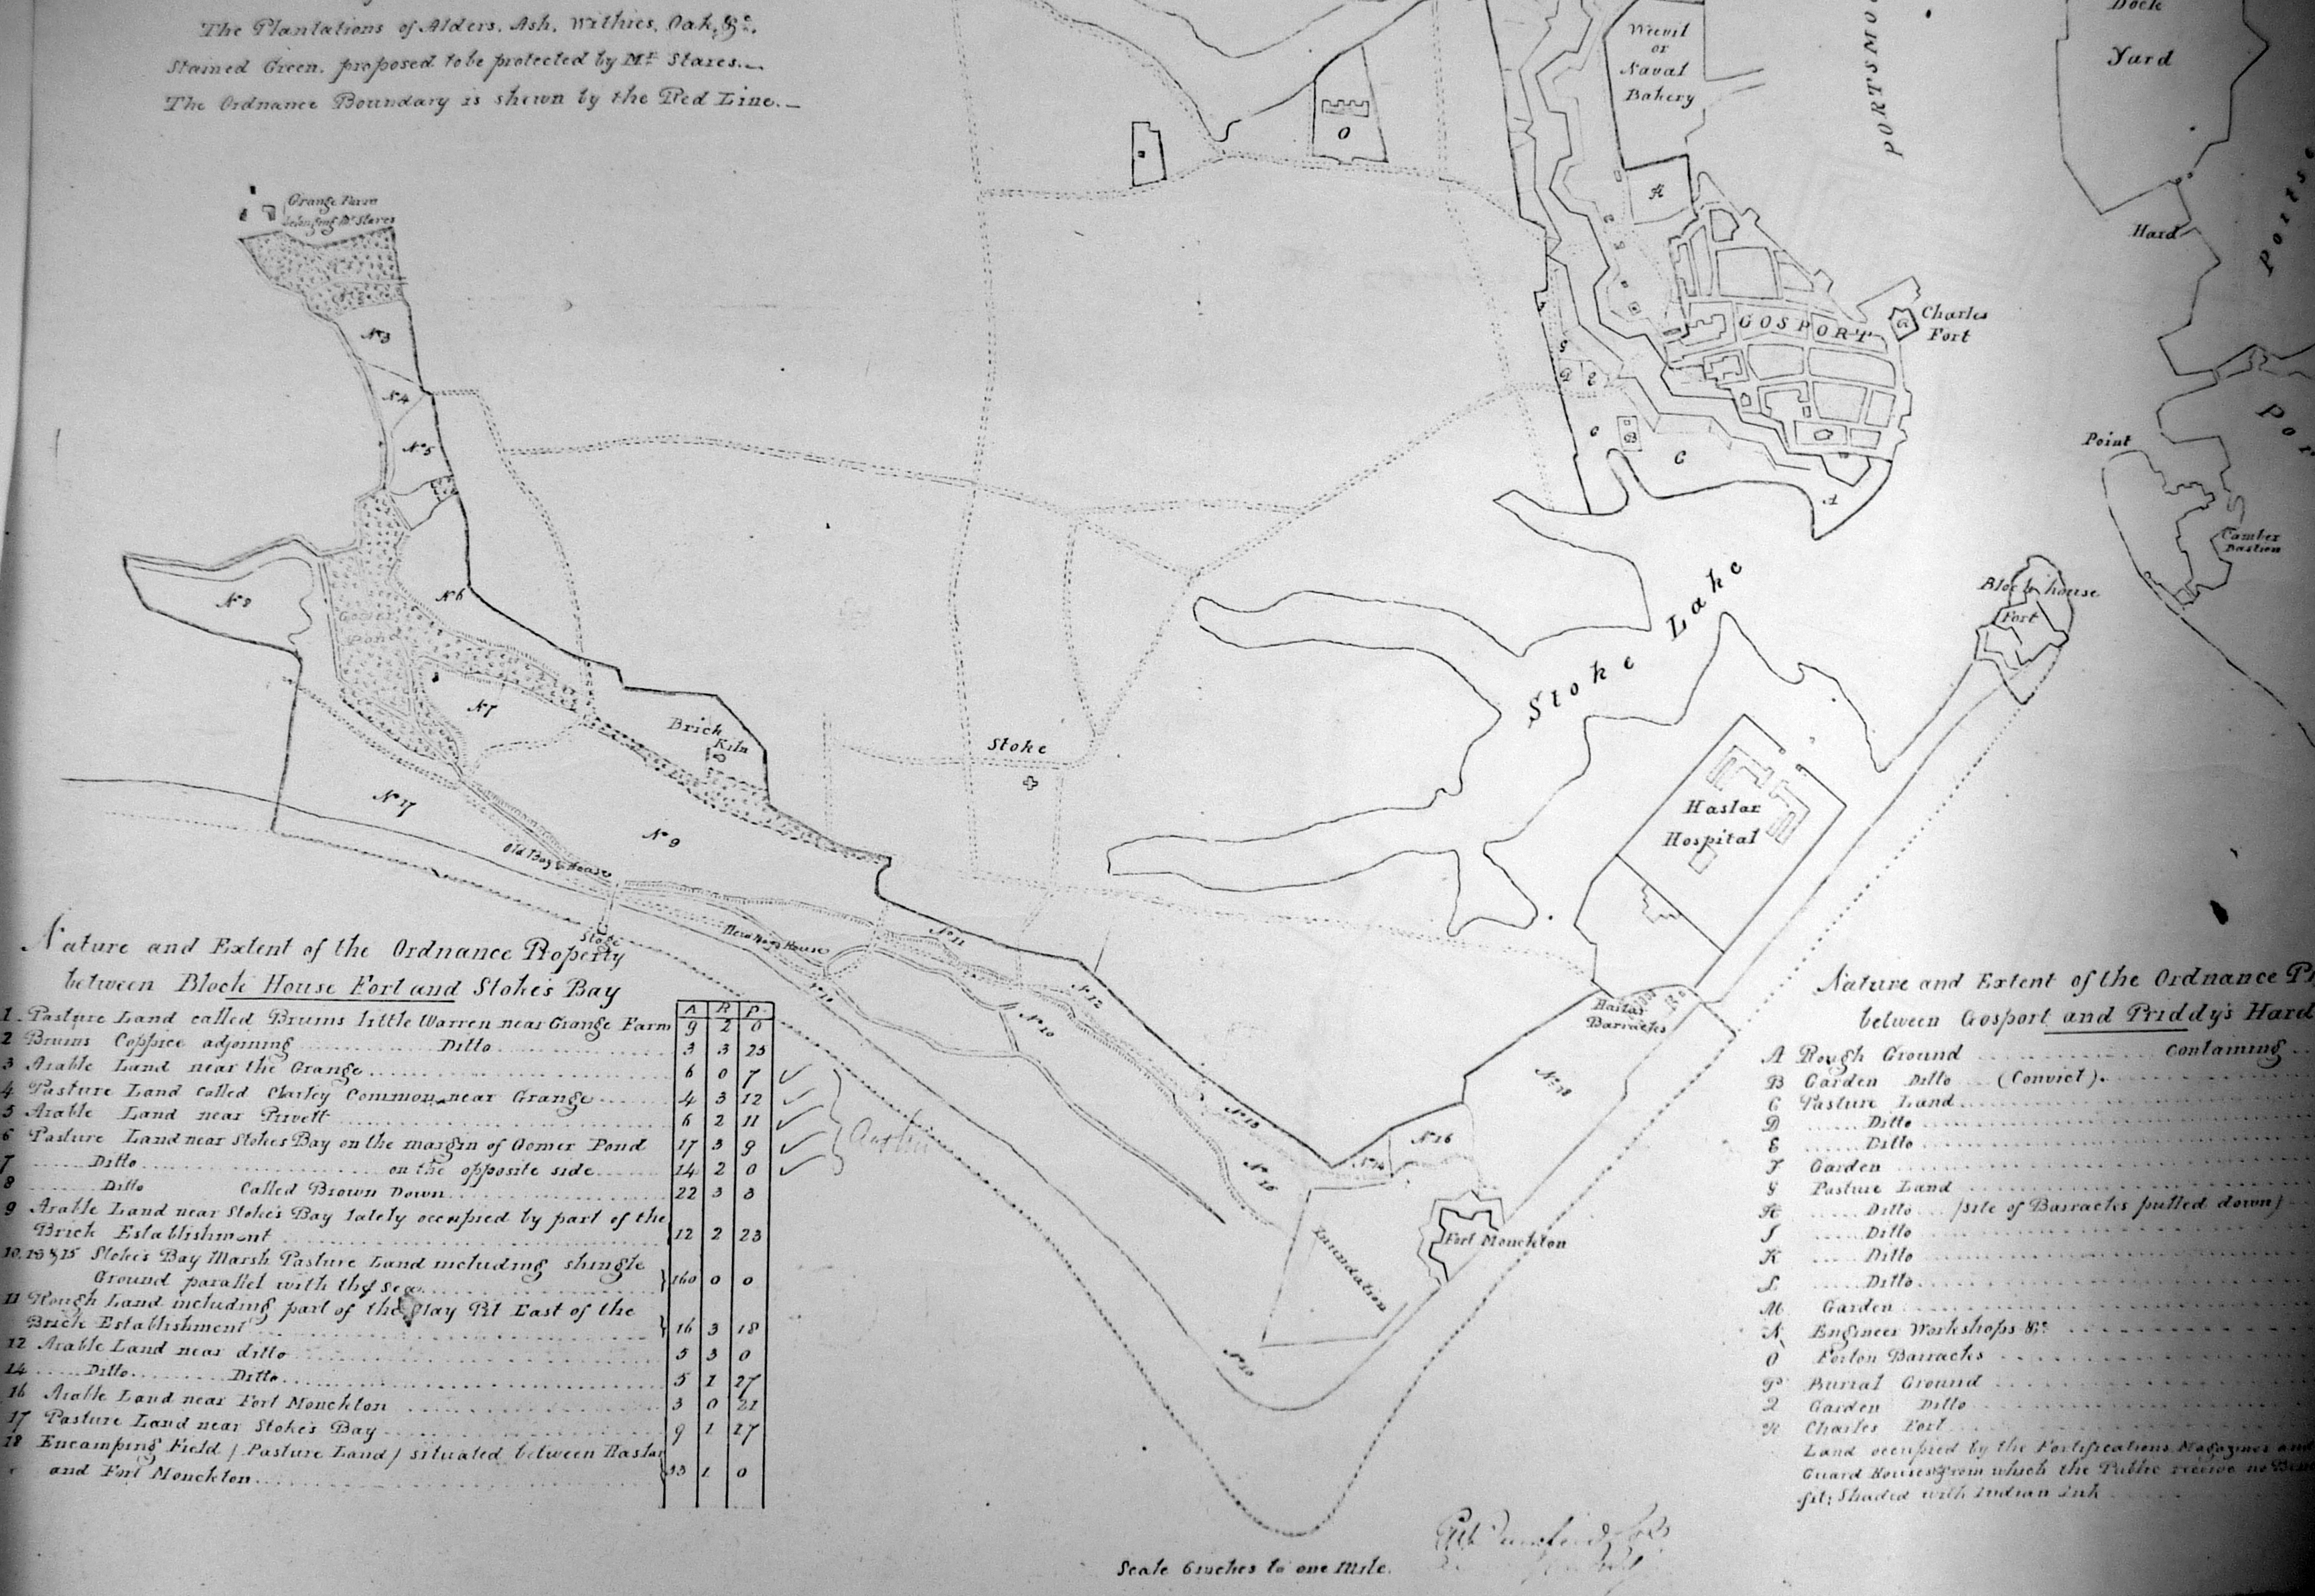 The Plantations of Alders, Ash, Withies, Oak, &c.
Stained Green, proposed to be protected by Mr. Stares.
The Ordnance Boundary is shewn by the Red Line.
Weevil
or
Naval
Bakery
PORTSMO
Dock
Yard
Hard
O
H
Grange Farm
belonging Mr Stares
No 3
No 4
No 5
No 6
No 8
Gomer
Pond
No 7
Brick
Kiln
No 17
No 9
Old Bay House
Stoke
GOSPORT
Charles
Fort
Point
Camber
Bastion
C
B
Stoke Lake
Block house
Fort
Haslar
Hospital
Haslar
Barracks
New Bays House
No 11
No 12
No 10
No 10
No 13
No 15
No 14
No 16
No 18
Inundation
Fort Monckton
No 10
Nature and Extent of the Ordnance Property
between Block House Fort and Stokes Bay
A R P
1 Pasture Land called Bruins little Warren near Grange Farm 9 2 0
2 Bruins Coppice adjoining Ditto 3 3 25
3 Arable Land near the Grange 6 0 7
4 Pasture Land called Clarley Common near Grange 4 3 12
5 Arable Land near Privett 6 2 11
6 Pasture Land near Stokes Bay on the margin of Gomer Pond 17 3 9
7 Ditto on the opposite side 14 2 0
8 Ditto Called Brown Down 22 3 3
9 Arable Land near Stoke's Bay lately occupied by part of the
Brick Establishment 12 2 23
10, 13 & 15 Stoke's Bay Marsh Pasture Land including shingle
Ground parallel with the Sea 160 0 0
11 Rough Land including part of the Clay Pit East of the
Brick Establishment 16 3 18
12 Arable Land near ditto 5 3 0
14 Ditto Ditto 5 1 27
16 Arable Land near Fort Monckton 3 0 21
17 Pasture Land near Stoke's Bay 9 1 27
18 Encamping Field / Pasture Land / situated between Haslar
and Fort Monckton 33 1 0
Nature and Extent of the Ordnance Pr
between Gosport and Priddy's Hard
A Rough Ground containing
B Garden Ditto (Convict)
C Pasture Land
D Ditto
E Ditto
F Garden
G Pasture Land
H Ditto /site of Barracks pulled down/
J Ditto
K Ditto
L Ditto
M Garden
N Engineer Workshops &c
O Forton Barracks
P Burial Ground
Q Garden Ditto
R Charles Fort
Land occupied by the Fortifications Magazines and
Guard Houses from which the Public receive no Bene
fit; Shaded with Indian Ink
Scale 6 inches to one Mile.